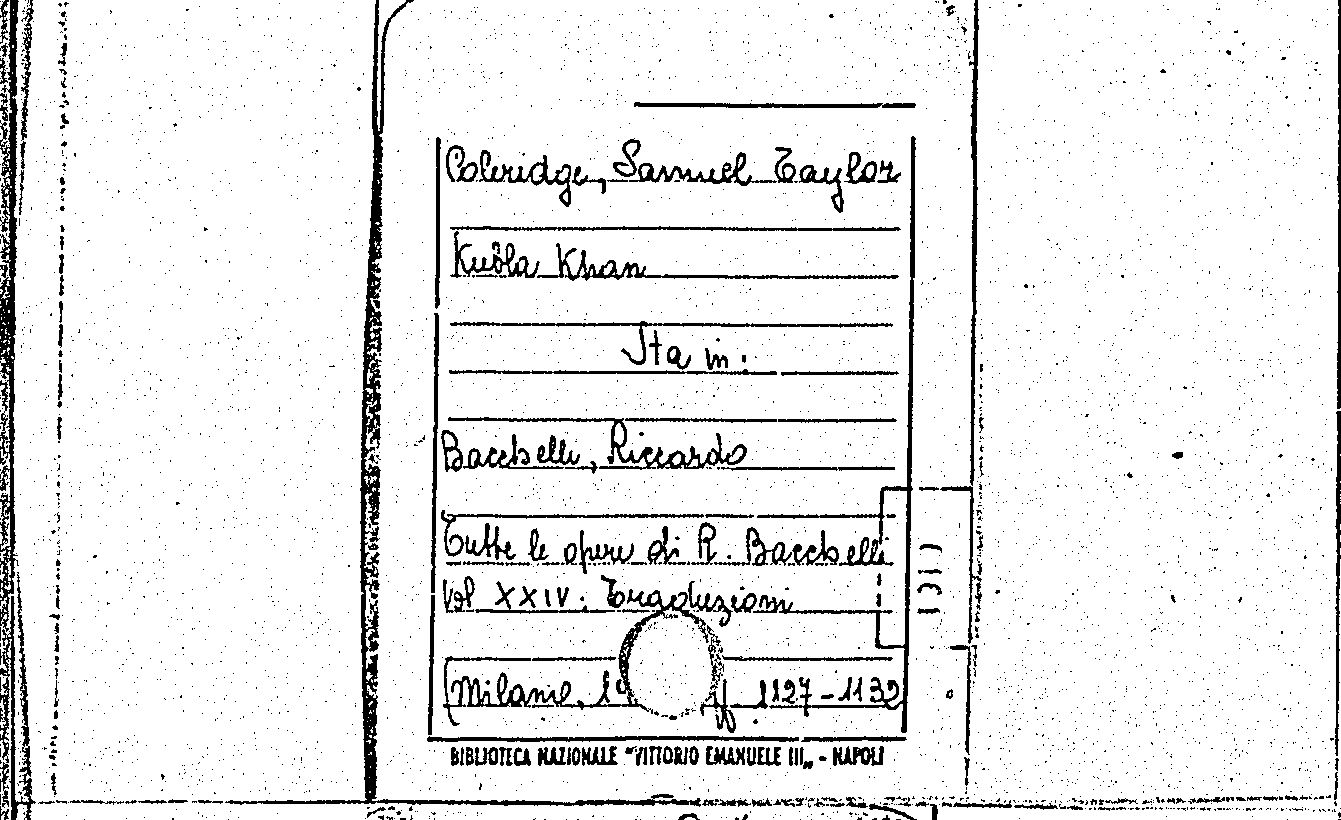 Coleridge, Samuel Taylor
Kubla Khan
Sta in:
Bacchelli, Riccardo
Tutte le opere di R. Bacchelli
Vol XXIV: Traduzioni
(Milano, 19 pp. 1127-1132
BIBLIOTECA NAZIONALE "VITTORIO EMANUELE III„ - NAPOLI